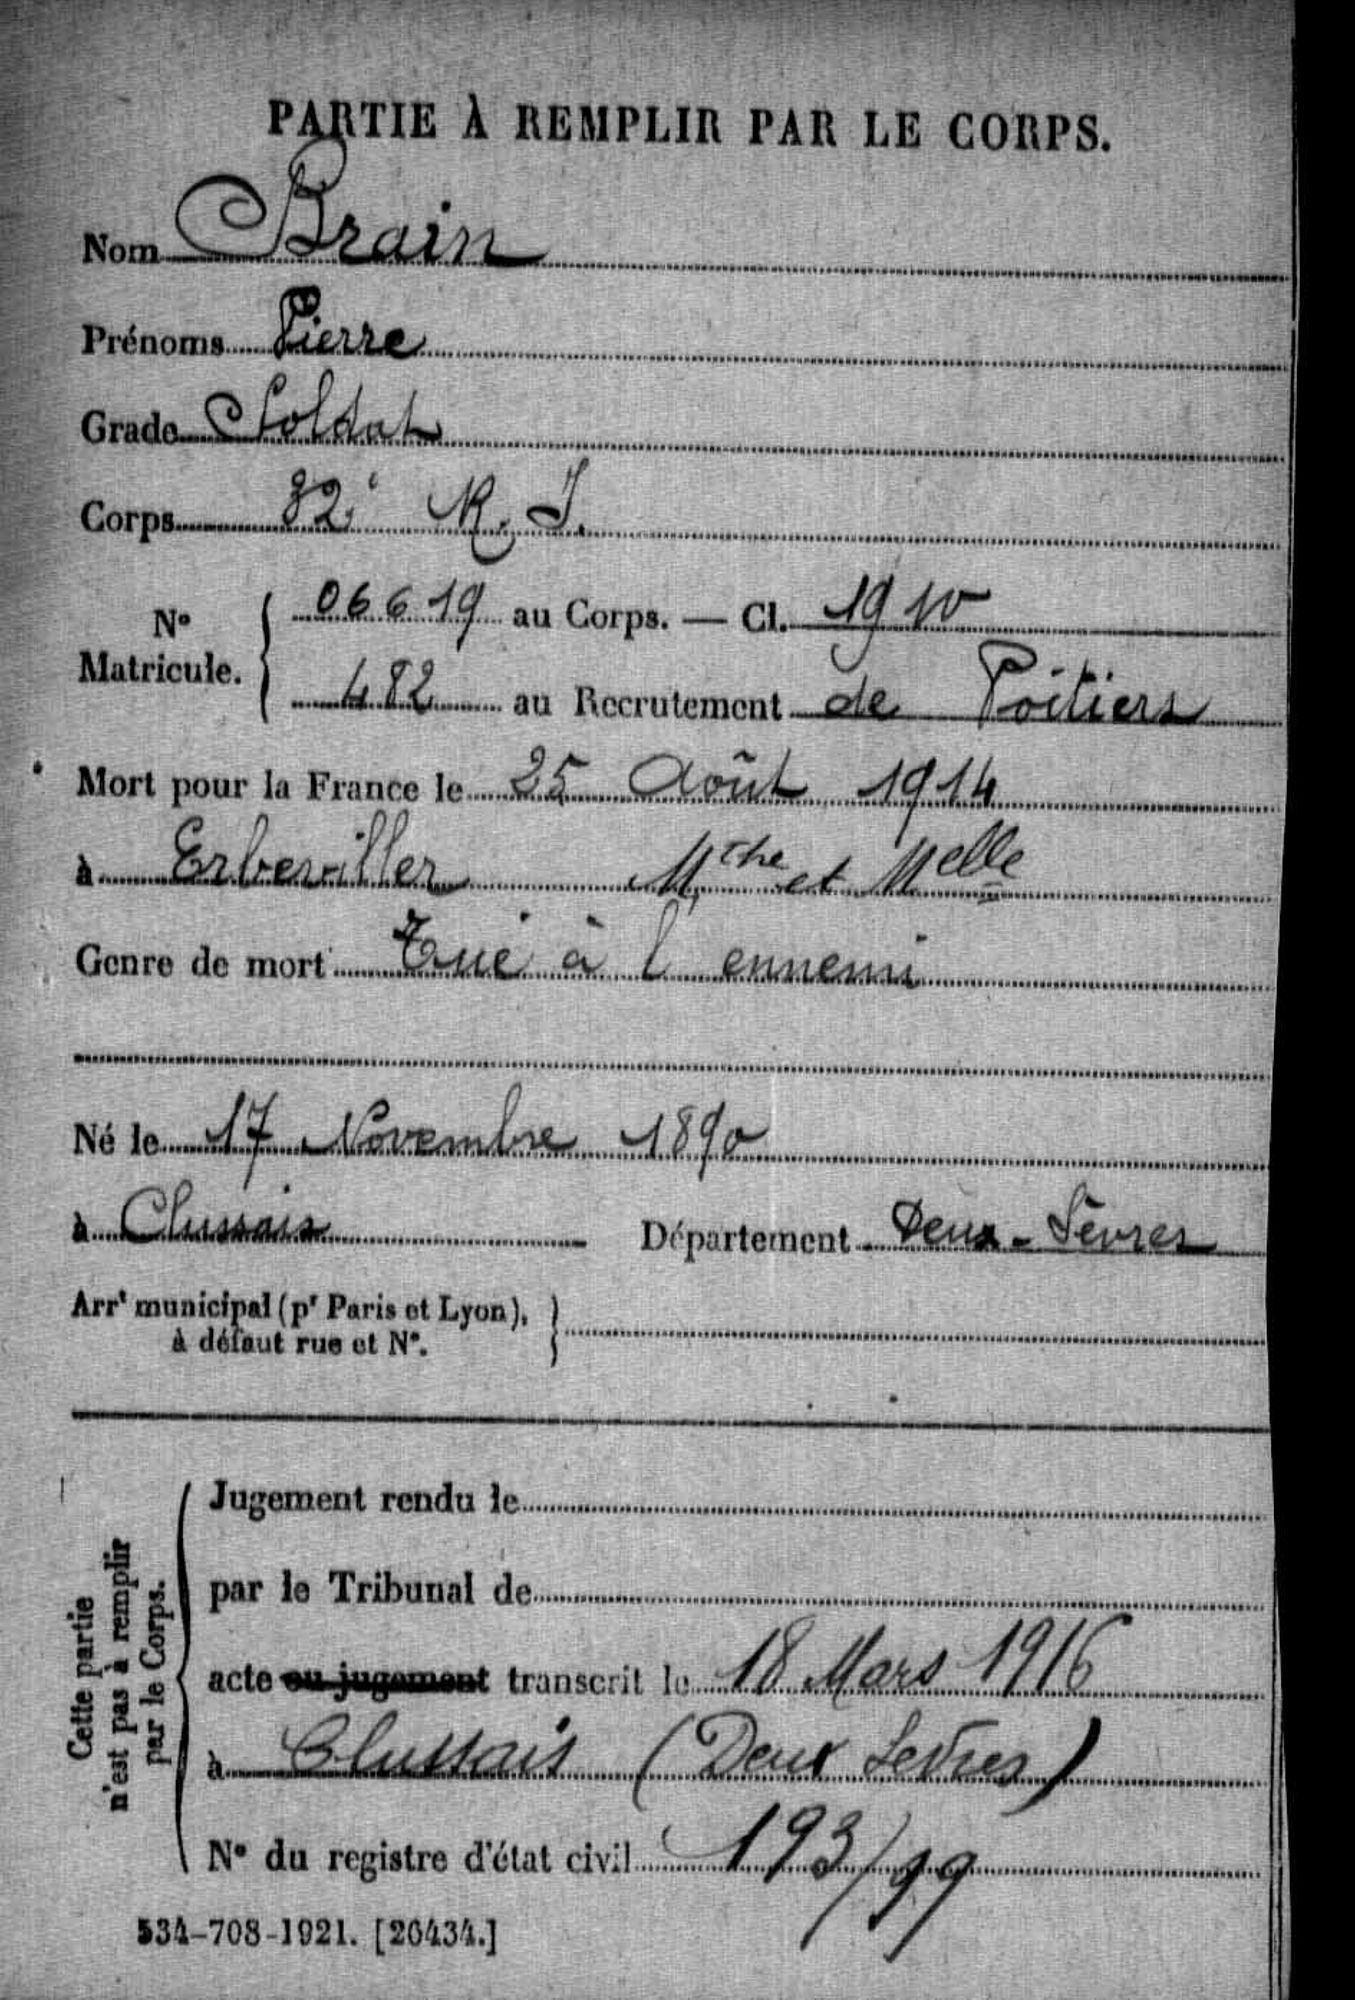 PARTIE À REMPLIR PAR LE CORPS.
Nom Brain
Prénoms Pierre
Grade Soldat
Corps 32e R. I.
No Matricule. { 06619 au Corps. — Cl. 1910
482 au Recrutement de Poitiers
Mort pour la France le 25 Août 1914
à Erberviller Mthe et Melle
Genre de mort Tué à l'ennemi
Né le 17 Novembre 1890
à Clussais Département Deux-Sèvres
Arrt municipal (pr Paris et Lyon), à défaut rue et No. }
Cette partie n'est pas à remplir par le Corps.
Jugement rendu le
par le Tribunal de
acte ou jugement transcrit le 18 Mars 1916
à Clussais (Deux Sevres)
No du registre d'état civil 193/99
534-708-1921. [26434.]